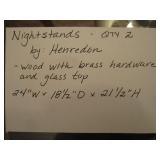 Nightstands - QTY 2
by: Henredon
- wood with brass hardware
and glass top
24"W x 18½"D x 21½"H